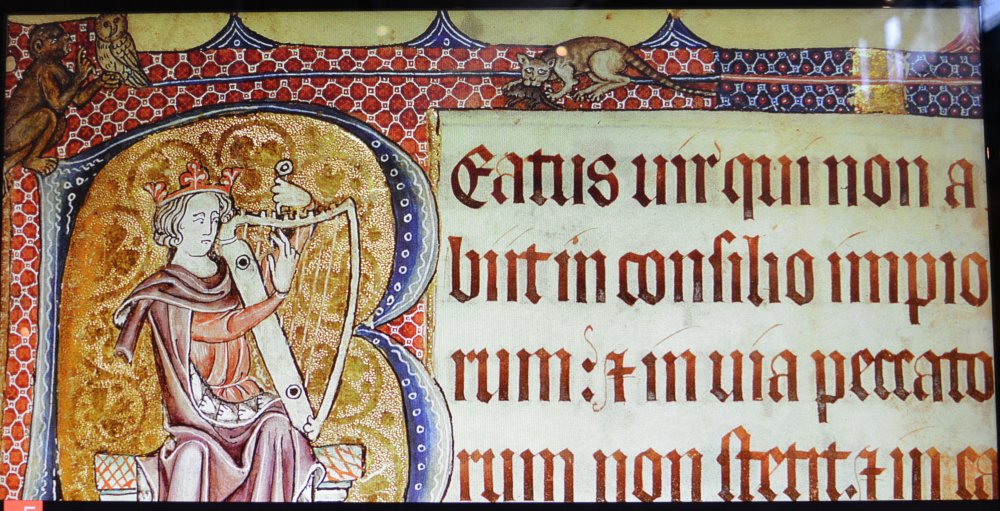 Beatus uir qui non a
biit in consilio impio
rum: ⁊ in uia peccato
rum non stetit. ⁊ in ca